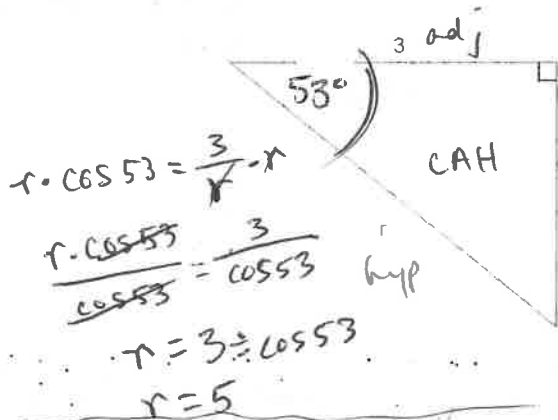 3 adj
53°
CAH
r · cos 53 = 3/r · r
r · cos 53 / cos 53 = 3 / cos 53
r
hyp
r = 3 ÷ cos 53
r = 5